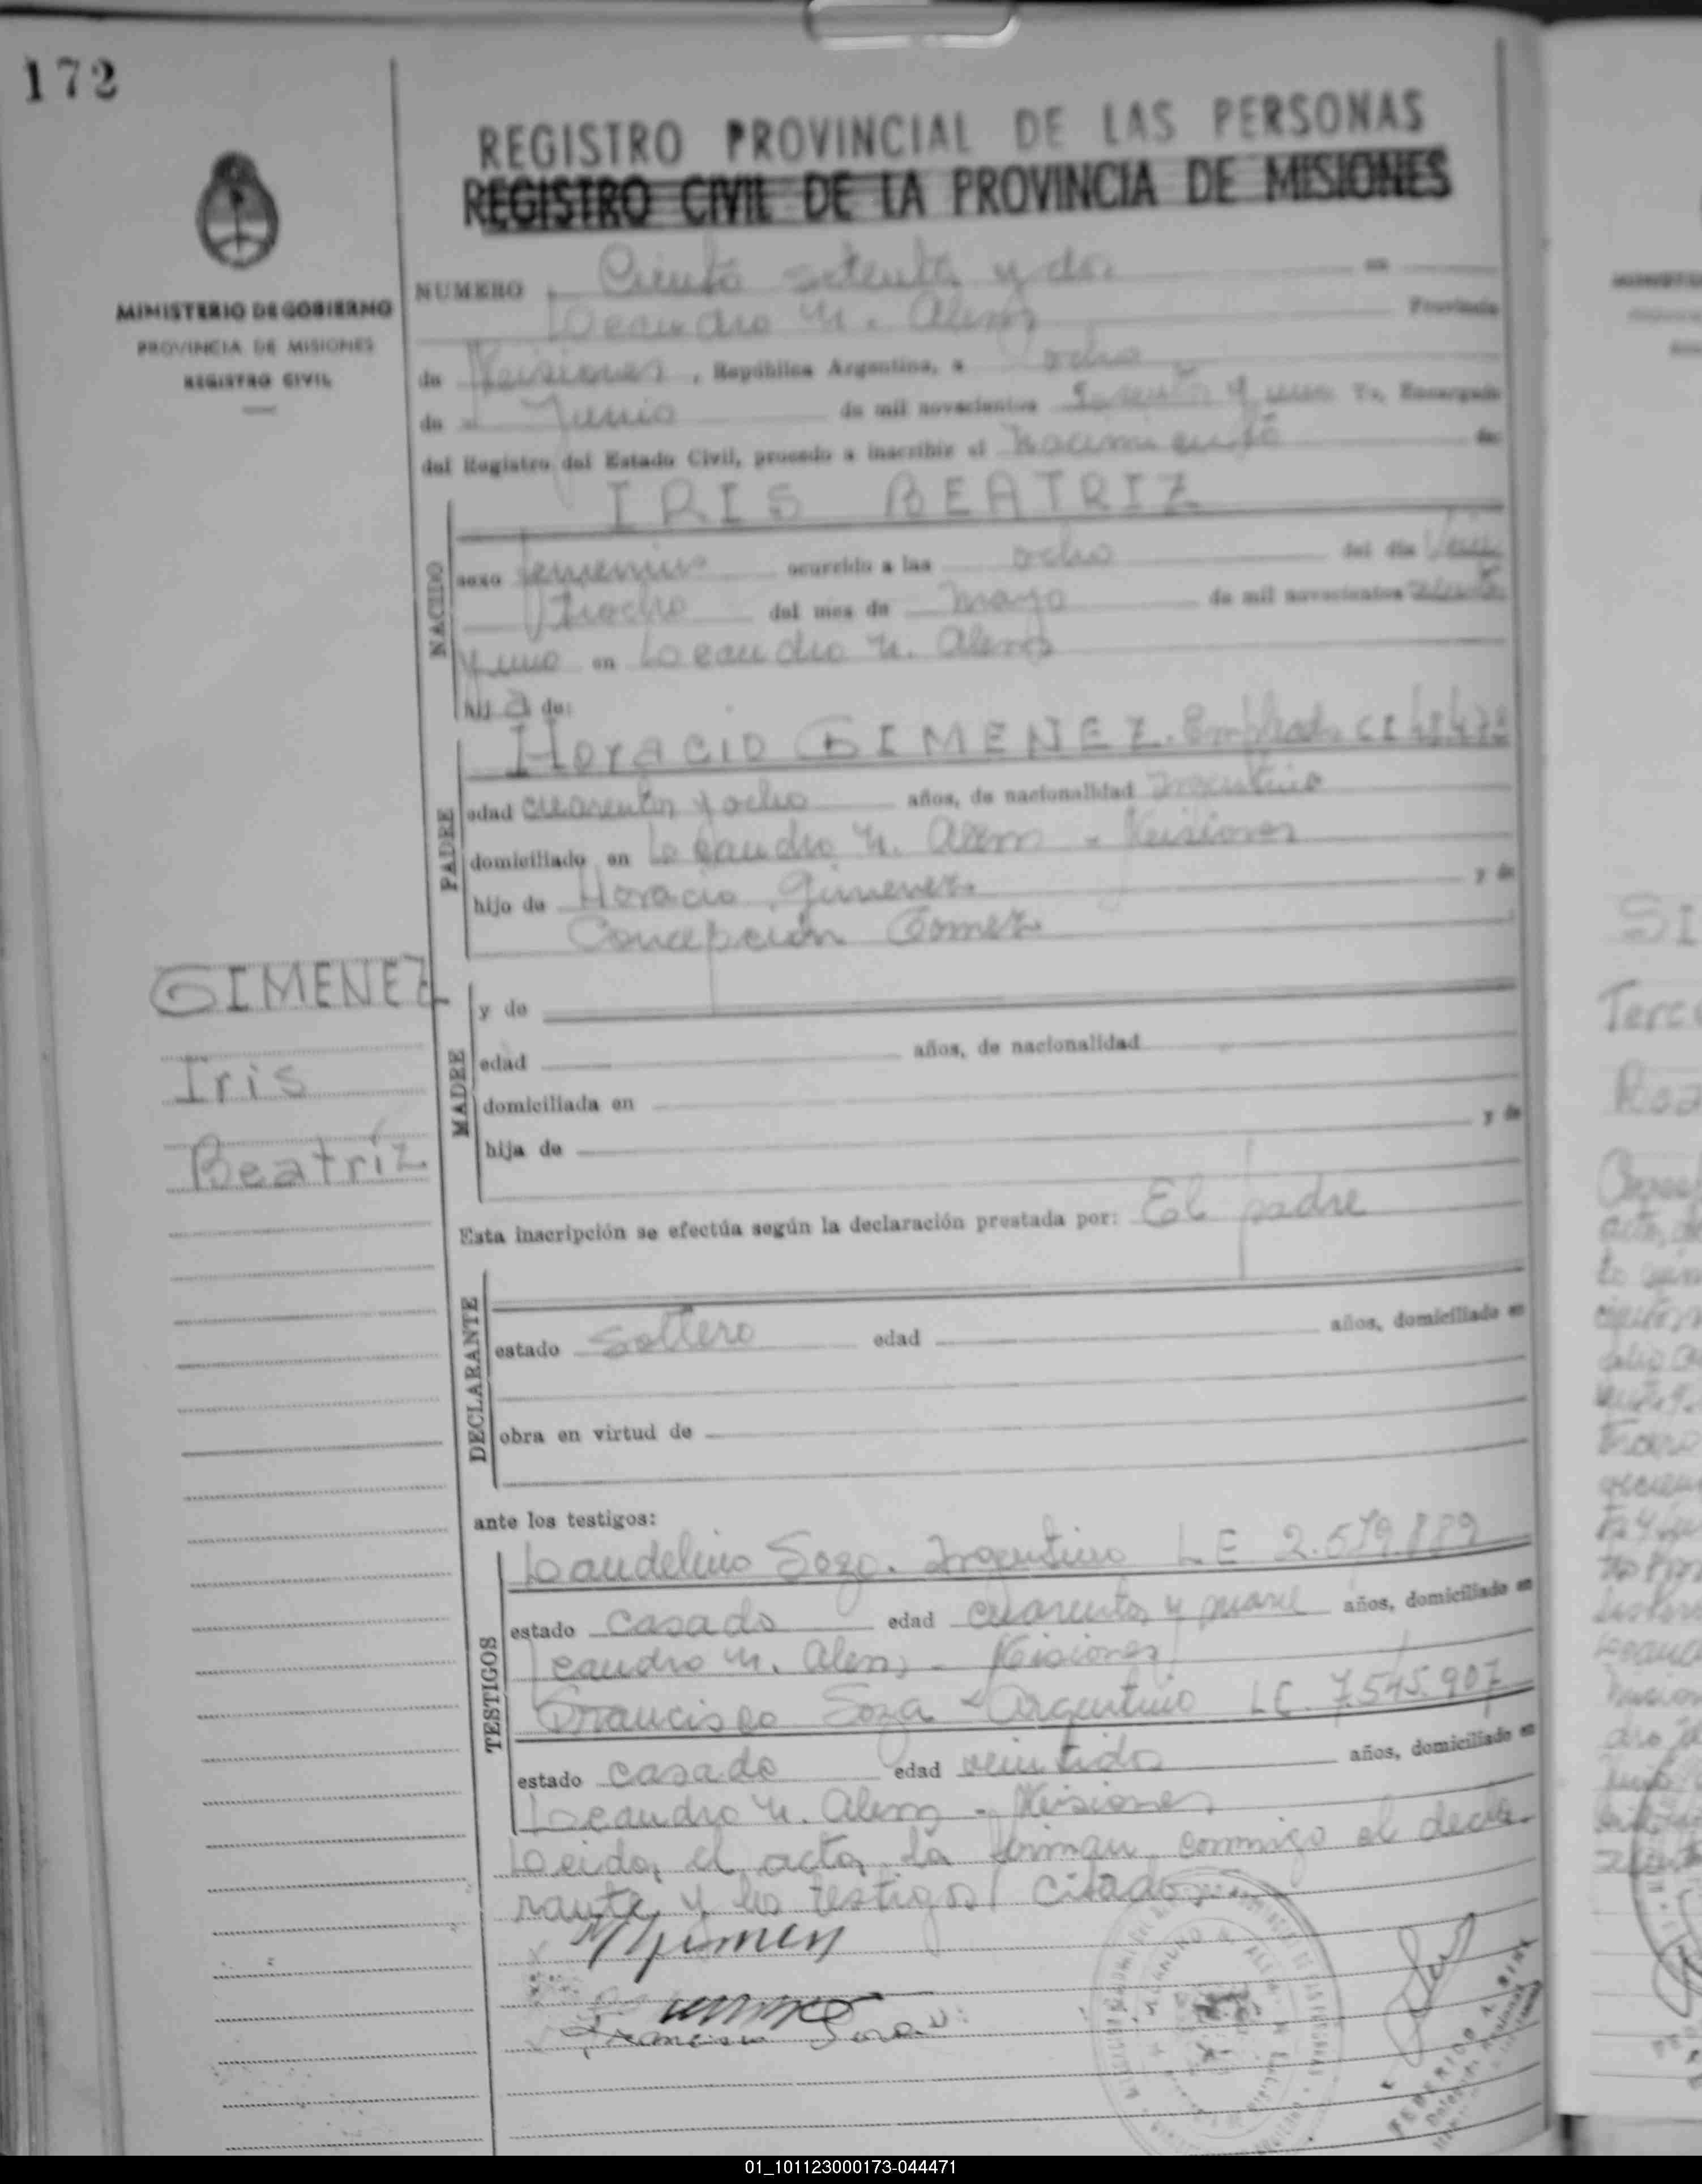 172
REGISTRO PROVINCIAL DE LAS PERSONAS
REGISTRO CIVIL DE LA PROVINCIA DE MISIONES
MINISTERIO DE GOBIERNO
PROVINCIA DE MISIONES
REGISTRO CIVIL
NUMERO Ciento setenta y dos en
Leandro N. Alem Provincia
de Misiones, República Argentina, a ocho
de Junio de mil novecientos setenta y uno Yo, Encargado
del Registro del Estado Civil, procedo a inscribir el Nacimiento de:
IRIS BEATRIZ
NACIDO
sexo femenino ocurrido a las ocho del día Vein
tiocho del mes de Mayo de mil novecientos setenta
y uno en Leandro N. Alem
hija de:
PADRE
Horacio GIMENEZ. Empleado CI
edad cuarenta y ocho años, de nacionalidad Argentino
domiciliado en Leandro N. Alem - Misiones
hijo de Horacio Gimenez y de
Concepción Gomez
GIMENEZ
Iris
Beatríz
MADRE
y de
edad años, de nacionalidad
domiciliada en
hija de y de
Esta inscripción se efectúa según la declaración prestada por: El padre
DECLARANTE
estado Soltero edad años, domiciliado en
obra en virtud de
ante los testigos:
TESTIGOS
Laudelino Sozo. Argentino LE 2.519.889
estado casado edad cuarenta y nueve años, domiciliado en
Leandro N. Alem - Misiones
Francisco Soza - Argentino LE 7.545.907
estado casado edad veintidos años, domiciliado en
Leandro N. Alem - Misiones
Leida el acta la firman conmigo el decla-
rante y los testigos citados.
Francisco Soza
FEDERICO A.
01_101123000173-044471